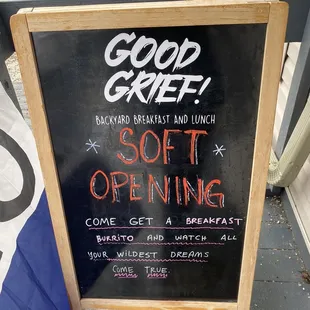 GOOD
GRIEF!
BACKYARD BREAKFAST AND LUNCH
SOFT
OPENING
COME GET A BREAKFAST
BURRITO AND WATCH ALL
YOUR WILDEST DREAMS
COME TRUE.